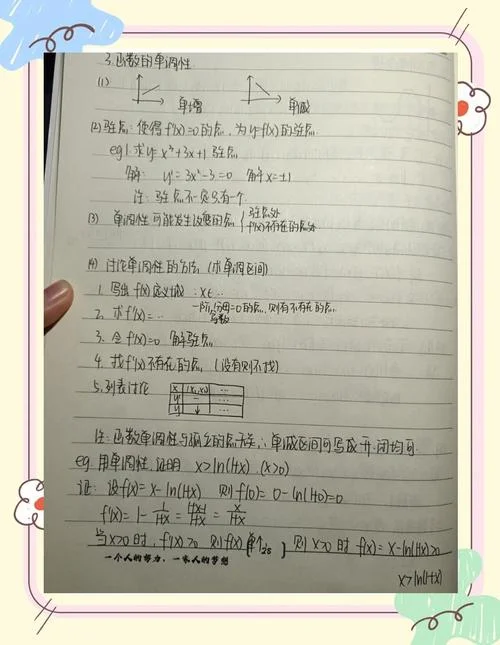 3.函数的单调性
(1)
单增 单减
(2)驻点:使得f'(x)=0的点,为y=f(x)的驻点.
eg1.求y=x³+3x+1驻点
解: y'=3x²-3=0 解得x=±1
注:驻点不一定只有一个.
(3) 单调性可能发生改变的点 { 驻点处
f'(x)不存在的点处
(4) 讨论单调性的方法(求单调区间)
1. 写出f(x)定义域:x∈…
一阶 分母=0的点,则有不存在的点.
2. 求f'(x)=… 导数
3. 令f'(x)=0 解驻点
4. 找f'(x)不存在的点 (没有则不找)
5.列表讨论
x (x₁,x₂) …
y' - …
y ↓ …
注:函数单调性与孤立的点无关,∴单减区间可写成开.闭均可.
eg.用单调性,证明 x>ln(1+x).(x>0)
证:设f(x)=x-ln(1+x) 则f(0)=0-ln(1+0)=0
f'(x)=1-1/1+x=1+x-1/1+x=x/1+x
当x>0时,f'(x)>0 则f(x)单个 则x>0时f(x)=x-ln(1+x)>0
一个人的努力,一家人的梦想
x>ln(1+x)